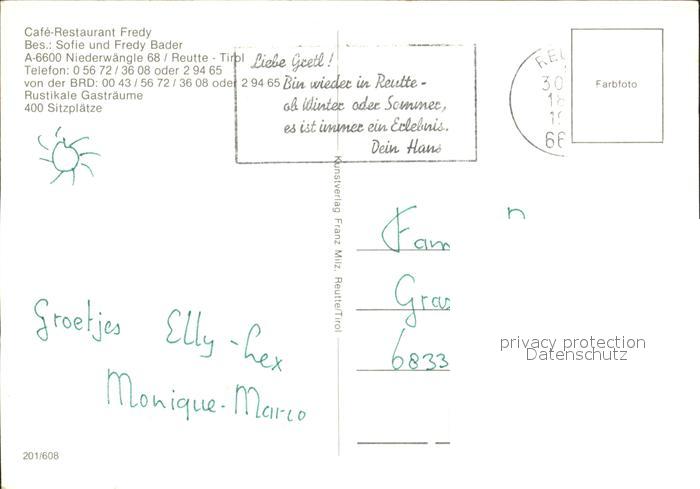 Café-Restaurant Fredy
Bes.: Sofie und Fredy Bader
A-6600 Niederwängle 68 / Reutte - Tirol
Telefon: 0 56 72 / 36 08 oder 2 94 65
von der BRD: 00 43 / 56 72 / 36 08 oder 2 94 65
Rustikale Gasträume
400 Sitzplätze
Liebe Gretl!
Bin wieder in Reutte -
ob Winter oder Sommer,
es ist immer ein Erlebnis.
Dein Hans
Farbfoto
Kunstverlag Franz Milz, Reutte/Tirol
Fam n
Gra
6833
privacy protection
Datenschutz
Groetjes Elly - hex
Monique - Marco
201/608